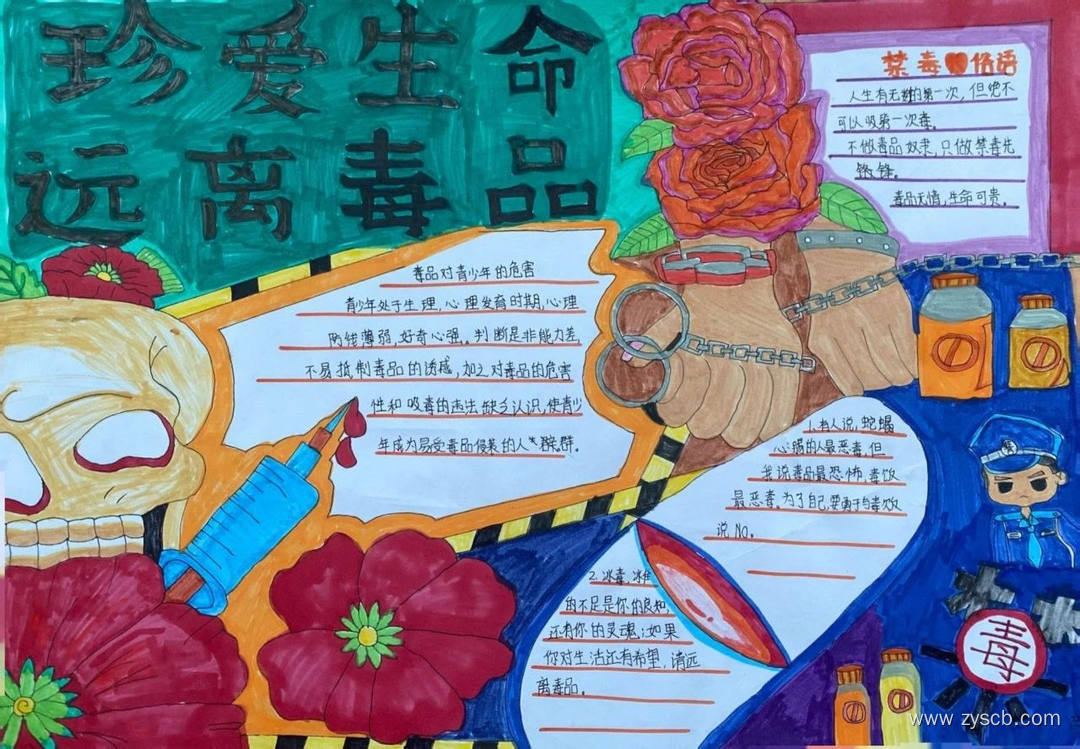 珍爱生命
远离毒品
禁毒俗语
人生有无数的第一次,但绝不
可以吸第一次毒。
不做毒品奴隶,只做禁毒先
锋。
毒品无情,生命可贵。
毒品对青少年的危害
青少年处于生理,心理发育时期,心理
防线薄弱,好奇心强。判断是非能力差
不易抵制毒品的诱惑,加之对毒品的危害
性和吸毒的违法缺乏认识,使青少
年成为易受毒品侵袭的人群。
1.有人说,蛇蝎
心肠的人最恶毒,但
我说毒品最恐怖,毒饮
最恶毒。为了自己,要勇于与毒饮
说NO。
2.冰毒,冰
的不足是你的良知,
还有你的灵魂;如果
你对生活还有希望,请远
离毒品。
毒
www.zyscb.com